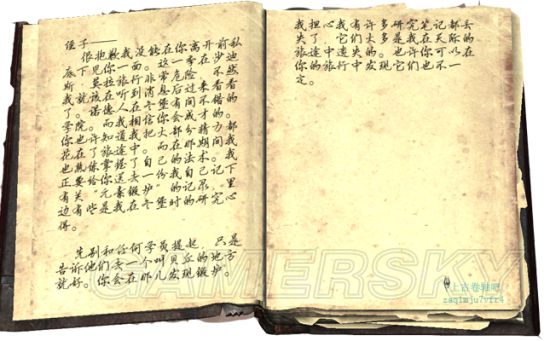 侄子——
很抱歉我没能在你离开前私
底下见你一面。这一季在沙迪
斯·莫拉旅行非常危险，不然
我就该在听到消息后过来看看
了。诺德人在冬堡有间不错的
学院。而我相信你会成才的。
你也许知道我把大部分精力都
花在了旅途中。而在那期间我
也熟练掌握了自己的法术。我
正要给你送去一份我自己记下
有关“元素锻炉”的记录。里
边有些是我在冬堡时的研究心
得。
先别和任何学员提起，只是
告诉他们去一个叫贝丘的地方
就好。你会在那儿发现锻炉。
我担心我有许多研究笔记都丢
失了，它们大多是我在天际的
旅途中遗失的。也许你可以在
你的旅行中发现它们也不一
定。
GAMERSKY
上古卷轴吧
zaq1mju7vfr4